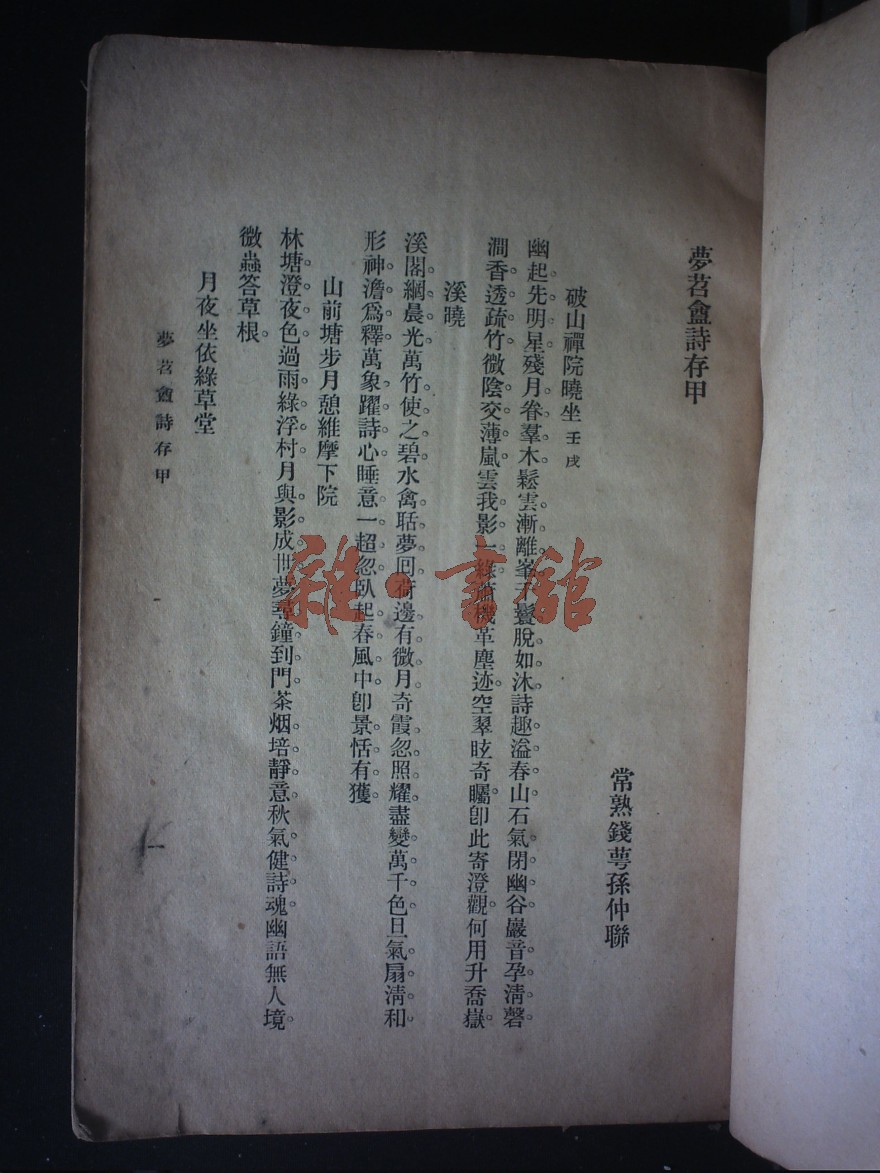 夢苕盦詩存甲
常熟錢萼孫仲聯
破山禪院曉坐 壬戌
幽起先明星。殘月眷羣木。鬆雲漸離峯。天鬟脫如沐。詩趣溢春山。石氣閉幽谷。巖音孕淸磬。
澗香透疏竹。微陰交薄嵐。雲我影一綠。蕭機革塵迹。空翠眩奇矚。卽此寄澄觀。何用升喬嶽。
溪曉
溪閣網晨光。萬竹使之碧。水禽聒夢回。荷邊有微月。奇霞忽照耀。盡變萬千色。旦氣扇淸和。
形神澹爲釋。萬象躍詩心。睡意一超忽。臥起春風中。卽景恬有獲。
山前塘步月憩維摩下院
林塘澄夜色。過雨綠浮村。月與影成世。夢尋鐘到門。茶烟培靜意。秋氣健詩魂。幽語無人境。
微蟲答草根。
月夜坐依綠草堂
夢苕盦詩存甲
一
雜·書館